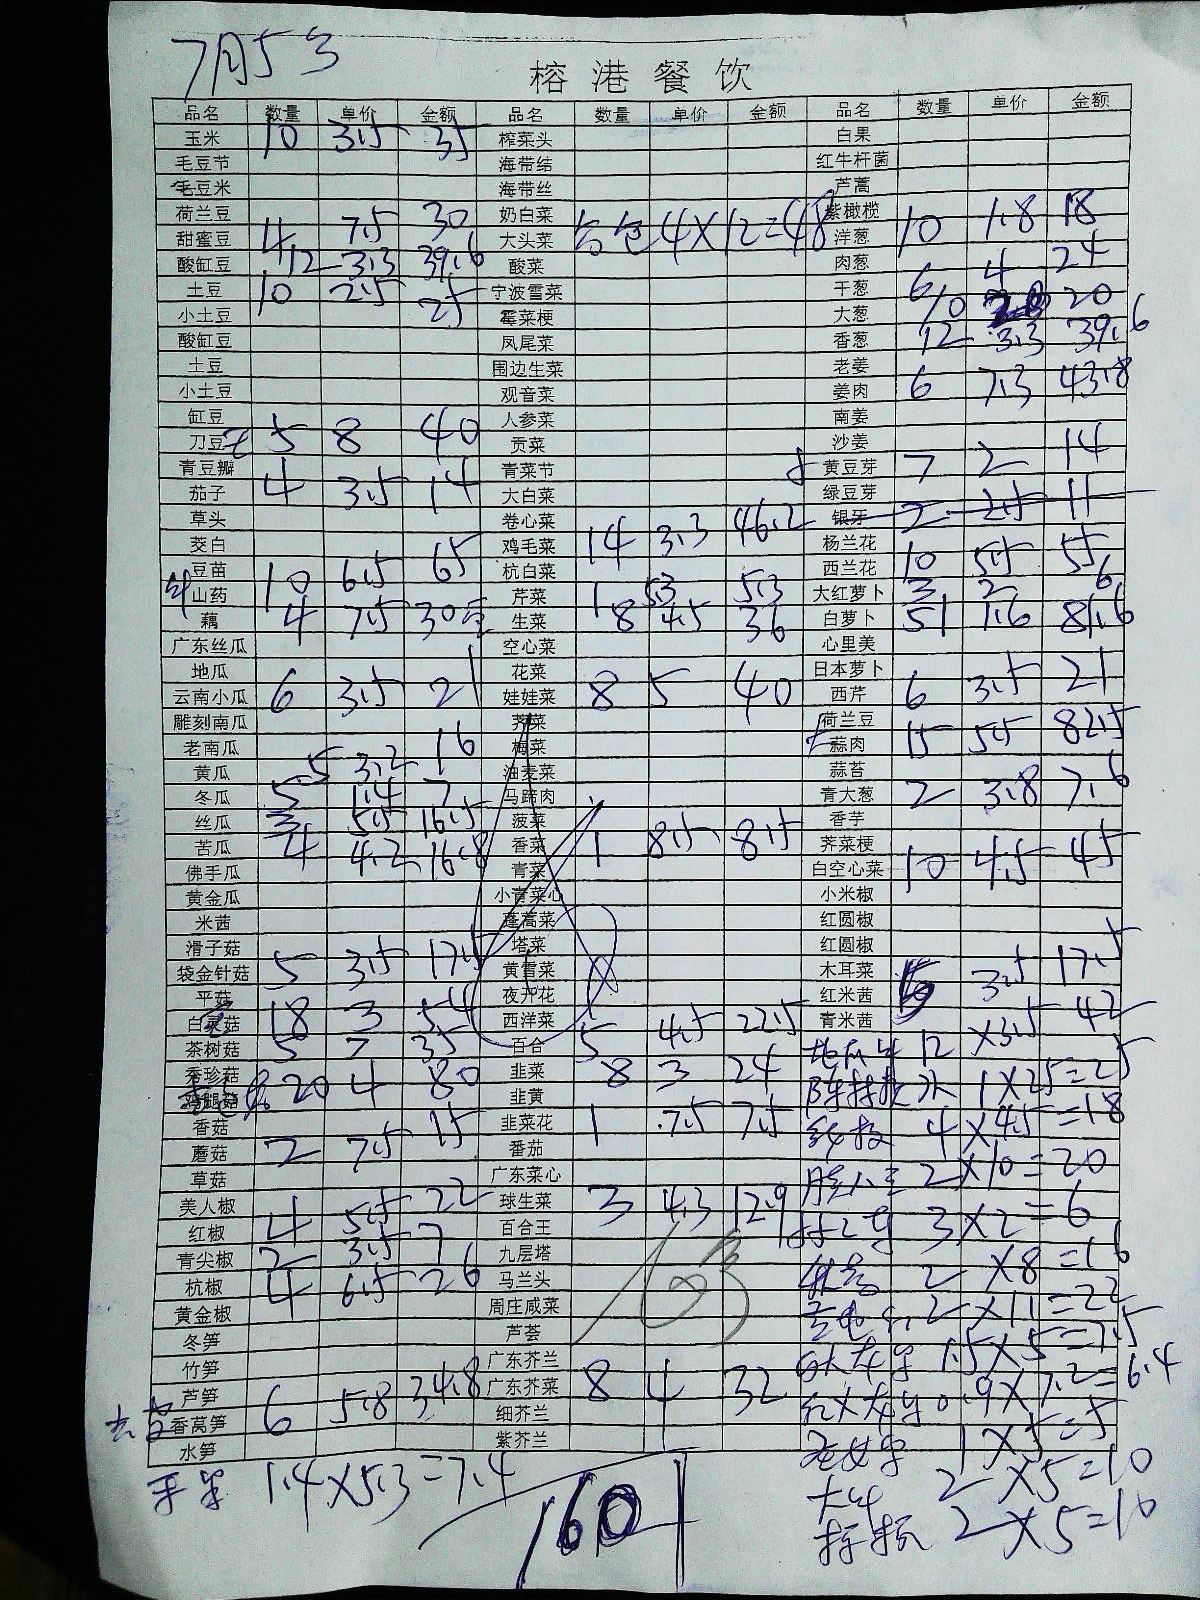 7月5号
榕港餐饮
品名 数量 单价 金额 品名 数量 单价 金额 品名 数量 单价 金额
玉米 10 3.5 35 榨菜头 白果
毛豆节 海带结 红牛杆菌
毛豆米 海带丝 芦蒿
荷兰豆 7.5 30 奶白菜 紫橄榄 1.8 18
甜蜜豆 4 大头菜 包 4×12=48 洋葱 10
酸缸豆 12 3.3 39.6 酸菜 肉葱 4 24
土豆 10 2.5 25 宁波雪菜 干葱 6
小土豆 霉菜梗 大葱 10 20
酸缸豆 凤尾菜 香葱 12 3.3 39.6
土豆 围边生菜 老姜
小土豆 观音菜 姜肉 6 7.3 43.8
缸豆 人参菜 南姜
刀豆 5 8 40 贡菜 沙姜
青豆瓣 青菜节 黄豆芽 7 2 14
茄子 4 3.5 14 大白菜 绿豆芽
草头 卷心菜 银牙 2 2.5 11
茭白 鸡毛菜 14 3.3 46.2 杨兰花
豆苗 6.5 65 杭白菜 西兰花 10 5.5 55
山药 10 芹菜 1 5.3 5.3 大红萝卜 3 2 6
藕 4 7.5 30 生菜 8 4.5 36 白萝卜 51 1.6 81.6
广东丝瓜 空心菜 心里美
地瓜 花菜 日本萝卜
云南小瓜 6 3.5 21 娃娃菜 8 5 40 西芹 6 3.5 21
雕刻南瓜 荠菜 荷兰豆
老南瓜 梅菜 蒜肉 15 5.5 82.5
黄瓜 5 3.2 16 油麦菜 蒜苔
冬瓜 5 1.4 7 马蹄肉 青大葱 2 3.8 7.6
丝瓜 3 5.5 16.5 菠菜 香芋
苦瓜 4 4.2 16.8 香菜 1 8.5 8.5 荠菜梗
佛手瓜 青菜 白空心菜 10 4.5 45
黄金瓜 小青菜心 小米椒
米茜 蓬蒿菜 红圆椒
滑子菇 塔菜 红圆椒
袋金针菇 5 3.5 17.5 黄雪菜 木耳菜 5 3.5 17.5
平菇 夜开花 红米茜
白灵菇 18 3 54 西洋菜 青米茜
茶树菇 5 7 35 百合 5 4.5 22.5 12×3.5 42
秀珍菇 20 4 80 韭菜 8 3 24 1×25=25
鸡腿菇 韭黄
香菇 韭菜花 1 7.5 7.5 4×4.5=18
蘑菇 2 7.5 15 番茄
草菇 广东菜心 2×10=20
美人椒 5.5 22 球生菜 3 4.3 12.9 3×2=6
红椒 4 百合王
青尖椒 2 3.5 7 九层塔 2×8=16
杭椒 4 6.5 26 马兰头
黄金椒 周庄咸菜 2×11=22
冬笋 芦荟
竹笋 广东芥兰 1.5×5=7.5
芦笋 5.8 34.8 广东芥菜 8 4 32 0.9×7.2=6.4
去皮 香莴笋 6 细芥兰
水笋 紫芥兰 1×5=5
1.4×5.3=7.4 2×5=10
1601 2×5=10